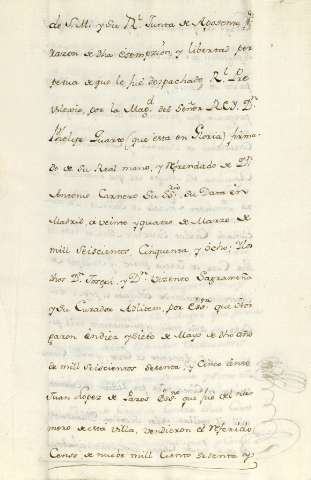 de S. M. y Su Rl. Junta de Aposento Pr.
razon de dha esempsion, y libertad per
petua de que le fué despachado Rl. Pre
vilexio, por la Magd. del Señor REY Dn.
Phelipe Quarto (que está en Gloria) firma
do de Su Real mano, y refrendado de Dn.
Antonio Carnero Su Ssrio. Su Data en
Madrid, a veinte y quatro de Marzo de
mill seiscientos Cinquenta y ocho; Los
dhos Dn. Joseph, y Dn. Vizente Sagrameña
y Su Curador Adlitem, por Essra. que otor
garon en diez y siete de Mayo de dho año
de mill seiscientos setenta, y Cinco ante
Juan Lopez de Essno. que fué del nu
mero de esta Villa, vendieron el referido
Censo de nuebe mill Ciento setenta y